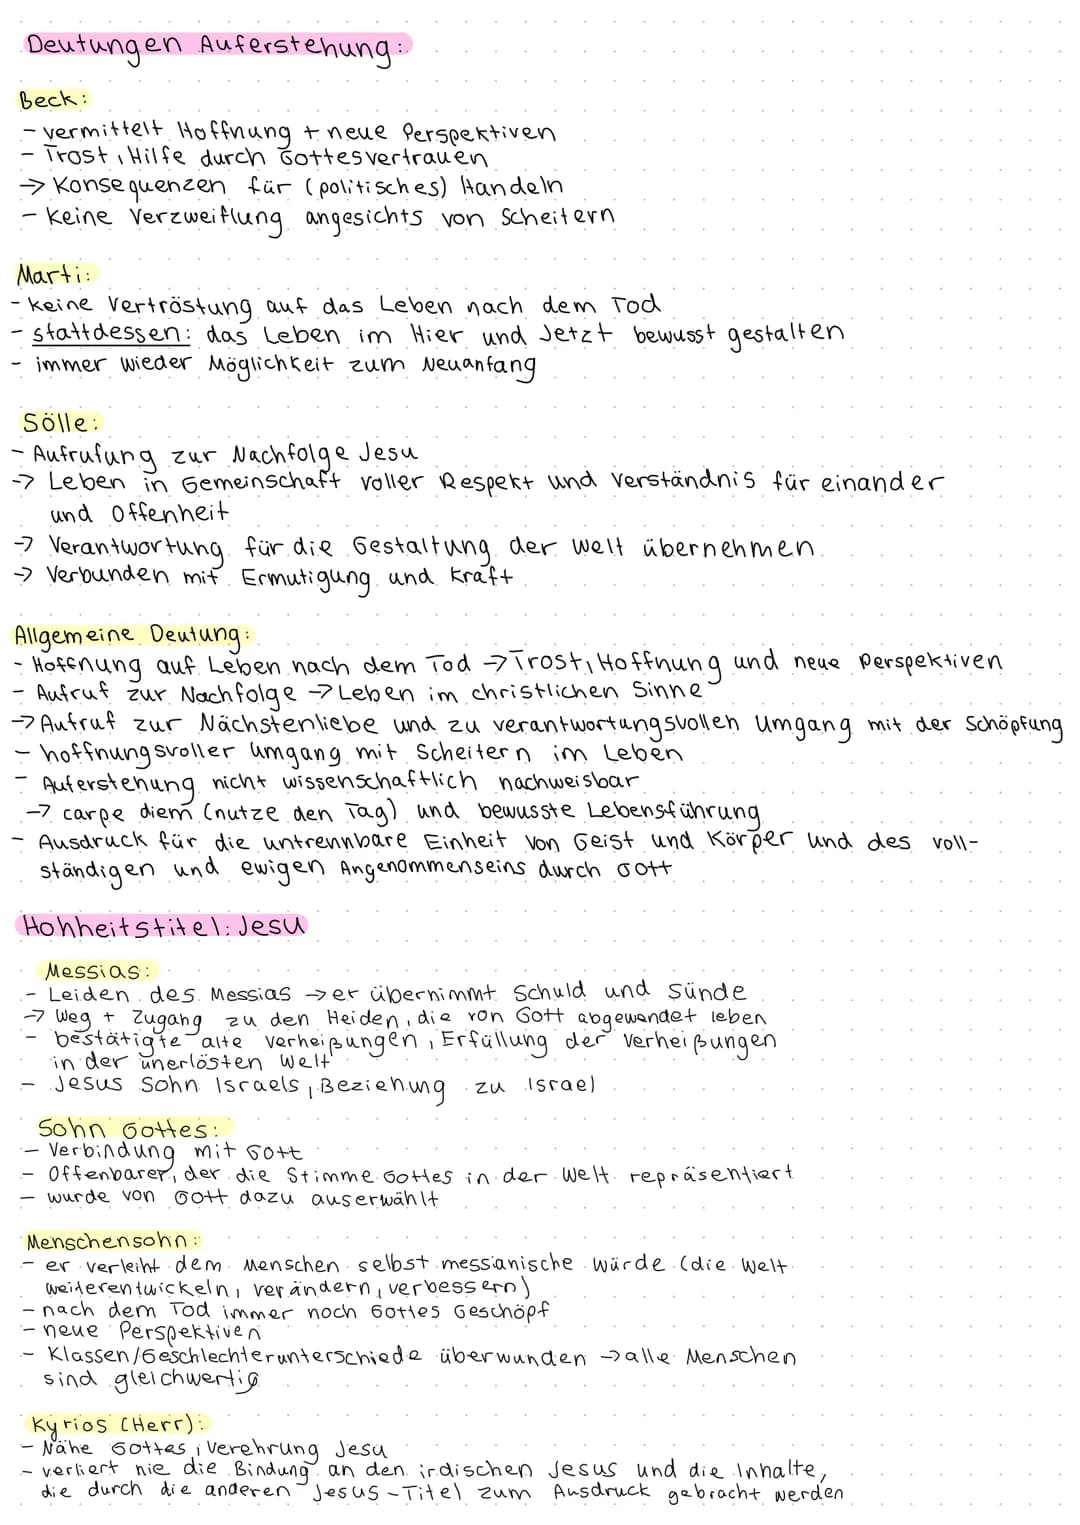 Deutungen Auferstehung:
Beck:
- vermittelt Hoffnung + neue Perspektiven
- Trost, Hilfe durch Gottesvertrauen
→ Konsequenzen für (politisches) Handeln
- Keine Verzweiflung angesichts von Scheitern
Marti:
- keine Vertröstung auf das Leben nach dem Tod
- stattdessen: das Leben im Hier und Jetzt bewusst gestalten
- immer wieder Möglichkeit zum Neuanfang
Sölle:
- Aufrufung zur Nachfolge Jesu
→ Leben in Gemeinschaft voller Respekt und Verständnis für einander
und Offenheit
→ Verantwortung für die Gestaltung der Welt übernehmen
→ Verbunden mit Ermutigung und Kraft
Allgemeine Deutung:
- Hoffnung auf Leben nach dem Tod → Trost, Hoffnung und neue Perspektiven
- Aufruf zur Nachfolge → Leben im christlichen Sinne
→ Aufruf zur Nächstenliebe und zu verantwortungsvollen Umgang mit der Schöpfung
- hoffnungsvoller Umgang mit Scheitern im Leben
- Auferstehung nicht wissenschaftlich nachweisbar
→ carpe diem (nutze den Tag) und bewusste Lebensführung
- Ausdruck für die untrennbare Einheit von Geist und Körper und des voll-
ständigen und ewigen Angenommenseins durch Gott
Hohheitstitel: Jesu
Messias:
- Leiden des Messias → er übernimmt Schuld und Sünde
→ Weg + Zugang zu den Heiden, die von Gott abgewendet leben
- bestätigte alte Verheißungen, Erfüllung der Verheißungen
in der unerlösten Welt
- Jesus Sohn Israels, Beziehung zu Israel
Sohn Gottes:
- Verbindung mit Gott
- Offenbarer, der die Stimme Gottes in der Welt repräsentiert
- wurde von Gott dazu auserwählt
Menschensohn:
- er verleiht dem Menschen selbst messianische Würde (die Welt
weiterentwickeln, verändern, verbessern)
- nach dem Tod immer noch Gottes Geschöpf
- neue Perspektiven
- Klassen/Geschlechterunterschiede überwunden → alle Menschen
sind gleichwertig
Kyrios (Herr):
- Nähe Gottes, Verehrung Jesu
- verliert nie die Bindung an den irdischen Jesus und die Inhalte,
die durch die anderen Jesus-Titel zum Ausdruck gebracht werden